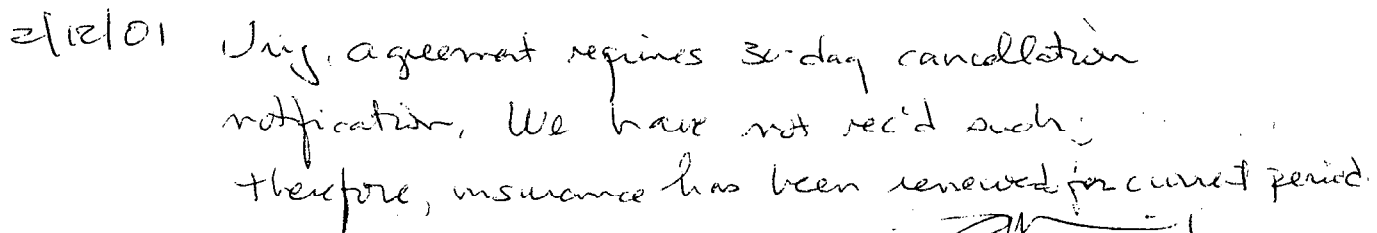 2/12/01 Orig. agreement requires 30-day cancellation
notification. We have not rec'd such;
therefore, insurance has been renewed for current period.